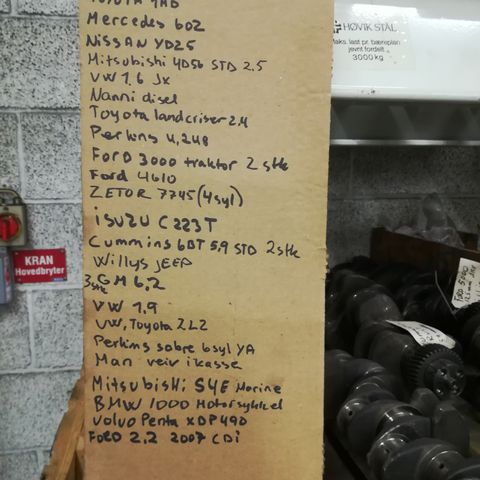 TOYOTA 4AG
Mercedes 602
NISSAN YD25
Mitsubishi 4D56 STD 2.5
VW 1.6 JX
Nanni disel
Toyota landcriser 2.4
Perkins 4,248
FORD 3000 traktor 2 stk
Ford 4610
ZETOR 7745 (4syl)
ISUZU C223T
Cummins 6BT 5,9 STD 2stk
Willys JEEP
3stk GM 6,2
VW 1,9
VW, Toyota 2L2
Perkins sabre 6syl YA
Man veiv i kasse
Mitsubishi S4E Marine
BMW 1000 Motorsykkel
Volvo Penta XDP490
FORD 2.2 2007 CDi
HØVIK STÅL
Maks. last pr. bæreplan
jevnt fordelt
3000 kg
KRAN
Hovedbryter